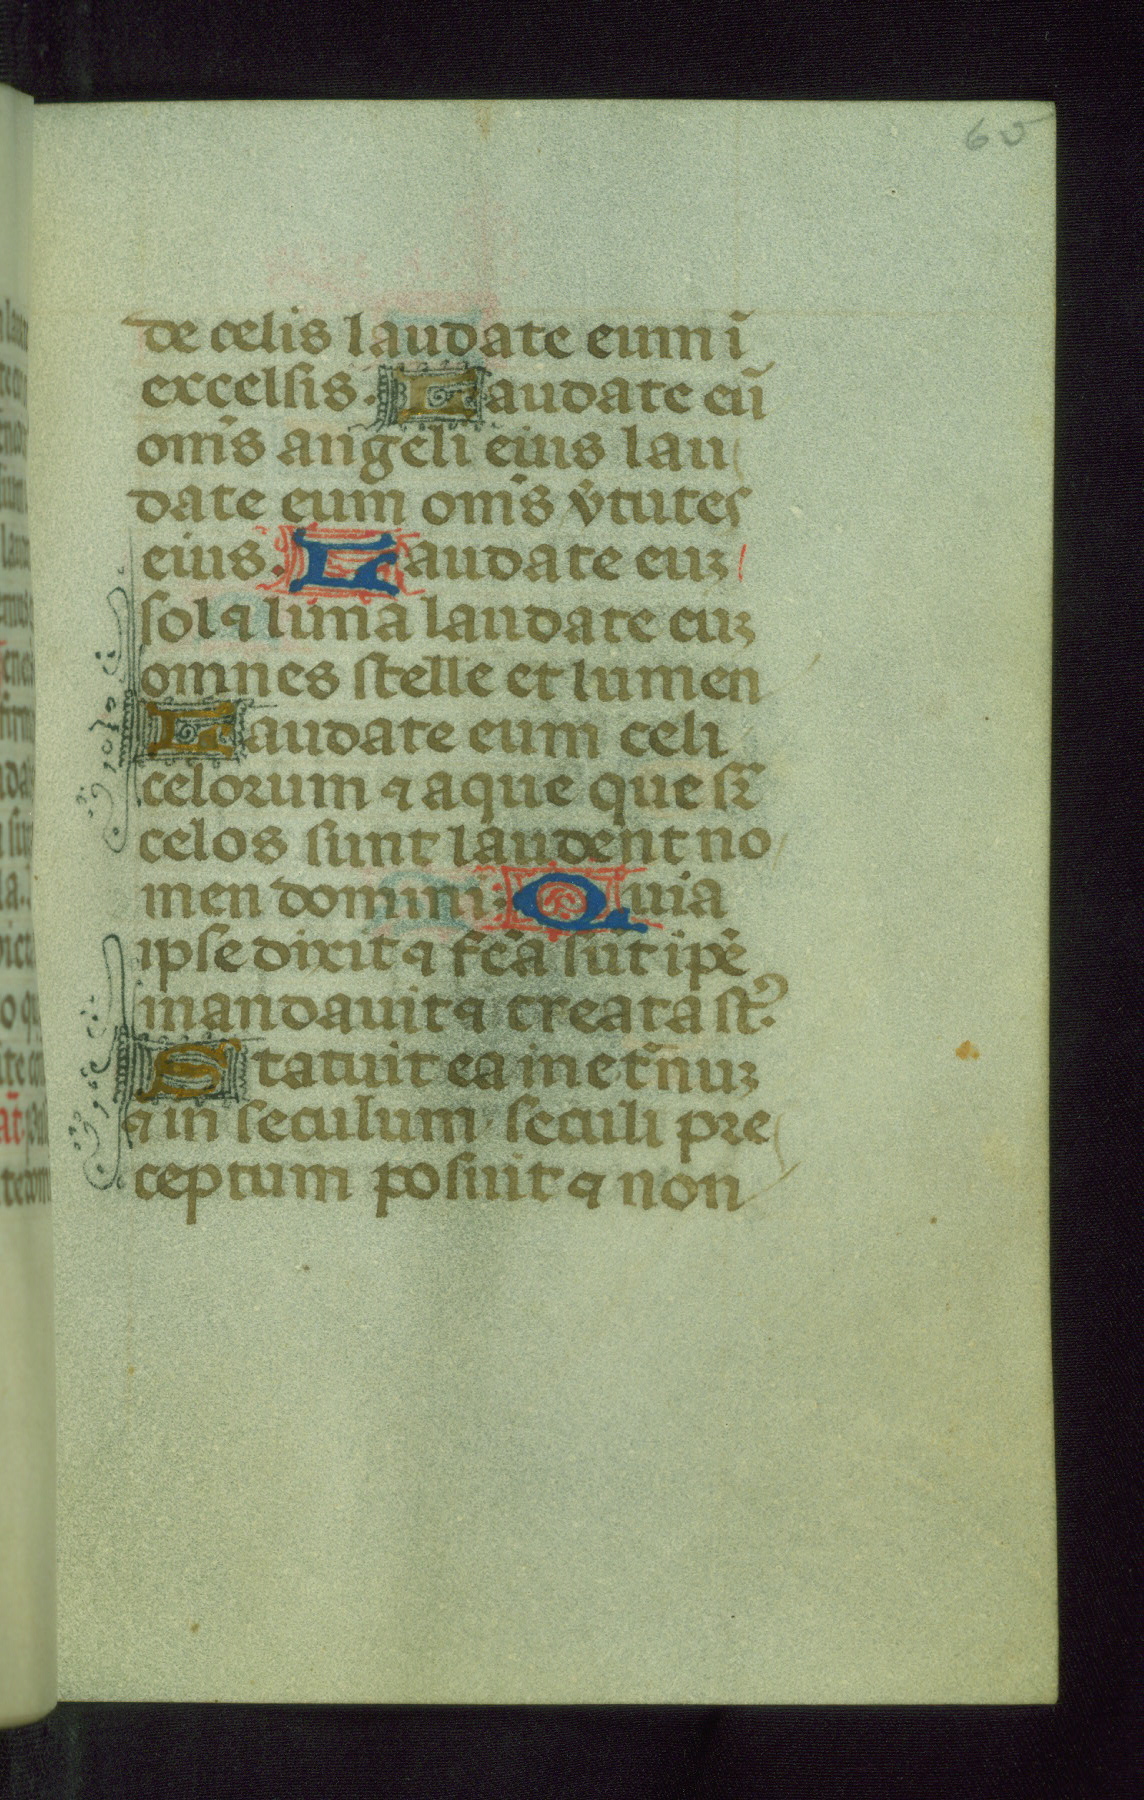 65
de celis laudate eum ī
excelsis. Laudate eū
om̄s angeli eius lau
date eum om̄s v̊tutes
eius. Laudate euꝫ
sol ⁊ luna laudate euꝫ
omnes stelle et lumen
Laudate eum celi
celorum ⁊ aque que sr̄
celos sunt laudent no
men domini. Quia
ipse dixit ⁊ fc̄a sūt ip̄e
mandavit ⁊ creata st̄.
Statuit ea in et̄nuꝫ
⁊ in seculum seculi pre
ceptum posuit ⁊ non